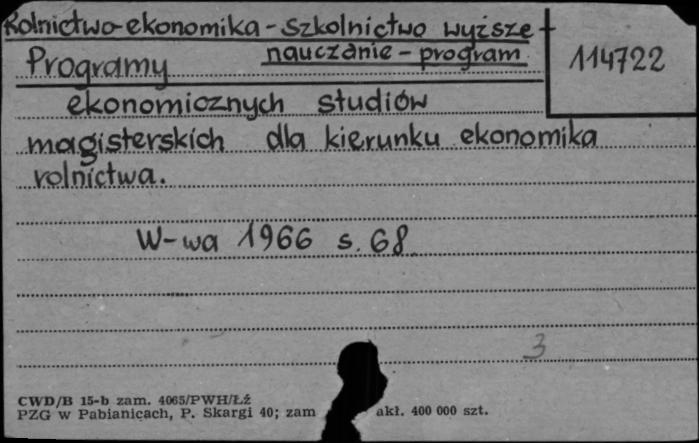 Rolnictwo-ekonomika - szkolnictwo wyższe -
nauczanie - program
114722
Programy
ekonomicznych studiów
magisterskich dla kierunku ekonomika
rolnictwa.
W-wa 1966 s. 68
3
CWD/B 15-b zam. 4065/PWH/Łź
PZG w Pabianicach, P. Skargi 40; zam akł. 400 000 szt.